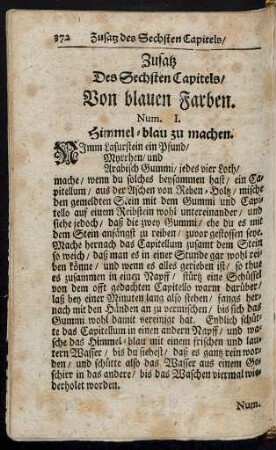 372 Zusatz des Sechsten Capitels/
Zusatz
Des Sechsten Capitels/
Von blauen Farben.
Num. I.
Himmel-blau zu machen.
NImm Lasurstein ein Pfund/
Myrrhen/ und
Arabisch Gummi/ jedes vier Loth/
mache/ wenn du solches beysammen hast/ ein Ca-
pitellum/ aus der Aschen von Reben-Holtz/ mische
den gemeldten Stein mit dem Gummi und Capi-
tello auf einem Reibstein wohl untereinander/ und
siehe jedoch/ daß die zwey Gummi/ ehe du es mit
dem Stein anfängst zu reiben/ zuvor gestossen seye.
Mache hernach das Capitellum zusamt dem Stein
so weich/ daß man es in einer Stunde gar wohl rei-
ben könne/ und wenn es alles gerieben ist/ so thue
es zusammen in einen Napff/ stürtz eine Schüssel
von dem offt gedachten Capitello warm darüber/
laß bey einer Minuten lang also stehen/ fangs her-
nach mit den Händen an zu vermischen/ bis sich das
Gummi wohl damit vereinigt hat. Endlich schüt-
te das Capitellum in einen andern Napff/ und wa-
sche das Himmel-blau mit einem frischen und lau-
tern Wasser/ bis du siehest/ daß es gantz rein wor-
den/ und schütte also das Wasser aus einem Ge-
schirr in das andere/ bis das Waschen viermal wie-
derholet worden.
Num.